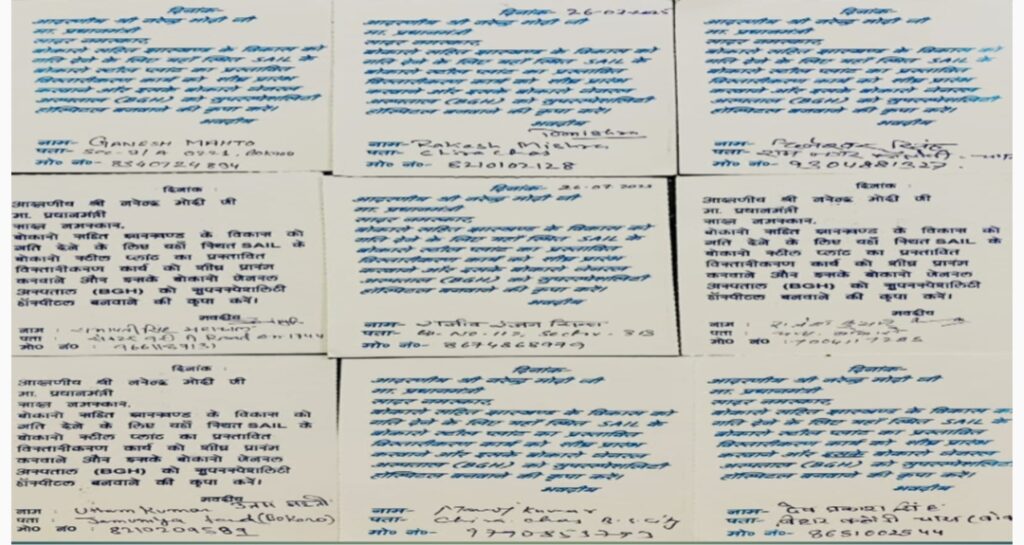 दिनांक-
आदरणीय श्री नरेन्द्र मोदी जी
मा. प्रधानमंत्री
सादर नमस्कार,
बोकारो सहित झारखण्ड के विकास को
गति देने के लिए यहाँ स्थित SAIL के
बोकारो स्टील प्लांट का प्रस्तावित
विस्तारीकरण कार्य को शीघ्र प्रारंभ
करवाने और इसके बोकारो जेनरल
अस्पताल (BGH) को सुपरस्पेशलिटी
हॉस्पिटल बनवाने की कृपा करें।
भवदीय
नाम- GANESH MAHTO
पता- Sec-9/A 0221, Bokaro
मो० नं०- 8340724894
दिनांक- 26-07-2025
आदरणीय श्री नरेन्द्र मोदी जी
मा. प्रधानमंत्री
सादर नमस्कार,
बोकारो सहित झारखण्ड के विकास को
गति देने के लिए यहाँ स्थित SAIL के
बोकारो स्टील प्लांट का प्रस्तावित
विस्तारीकरण कार्य को शीघ्र प्रारंभ
करवाने और इसके बोकारो जेनरल
अस्पताल (BGH) को सुपरस्पेशलिटी
हॉस्पिटल बनवाने की कृपा करें।
भवदीय
नाम- Rakesh Mishra
पता- Chira Chas
मो० नं०- 6210102128
दिनांक-
आदरणीय श्री नरेन्द्र मोदी जी
मा. प्रधानमंत्री
सादर नमस्कार,
बोकारो सहित झारखण्ड के विकास को
गति देने के लिए यहाँ स्थित SAIL के
बोकारो स्टील प्लांट का प्रस्तावित
विस्तारीकरण कार्य को शीघ्र प्रारंभ
करवाने और इसके बोकारो जेनरल
अस्पताल (BGH) को सुपरस्पेशलिटी
हॉस्पिटल बनवाने की कृपा करें।
भवदीय
नाम-
पता- राम नगर कॉलोनी
मो० नं०- 9304881327
दिनांक :
आदरणीय श्री नरेन्द्र मोदी जी
मा. प्रधानमंत्री
सादर नमस्कार,
बोकारो सहित झारखण्ड के विकास को
गति देने के लिए यहाँ स्थित SAIL के
बोकारो स्टील प्लांट का प्रस्तावित
विस्तारीकरण कार्य को शीघ्र प्रारंभ
करवाने और इसके बोकारो जेनरल
अस्पताल (BGH) को सुपरस्पेशलिटी
हॉस्पिटल बनवाने की कृपा करें।
भवदीय
नाम :
पता :
मो० नं० :
दिनांक- 26-07-2025
आदरणीय श्री नरेन्द्र मोदी जी
मा. प्रधानमंत्री
सादर नमस्कार,
बोकारो सहित झारखण्ड के विकास को
गति देने के लिए यहाँ स्थित SAIL के
बोकारो स्टील प्लांट का प्रस्तावित
विस्तारीकरण कार्य को शीघ्र प्रारंभ
करवाने और इसके बोकारो जेनरल
अस्पताल (BGH) को सुपरस्पेशलिटी
हॉस्पिटल बनवाने की कृपा करें।
भवदीय
नाम- राजीव रंजन
पता- Sector-3B
मो० नं०- 8674868979
दिनांक :
आदरणीय श्री नरेन्द्र मोदी जी
मा. प्रधानमंत्री
सादर नमस्कार,
बोकारो सहित झारखण्ड के विकास को
गति देने के लिए यहाँ स्थित SAIL के
बोकारो स्टील प्लांट का प्रस्तावित
विस्तारीकरण कार्य को शीघ्र प्रारंभ
करवाने और इसके बोकारो जेनरल
अस्पताल (BGH) को सुपरस्पेशलिटी
हॉस्पिटल बनवाने की कृपा करें।
भवदीय
नाम :
पता :
मो० नं० : 7004117285
दिनांक :
आदरणीय श्री नरेन्द्र मोदी जी
मा. प्रधानमंत्री
सादर नमस्कार,
बोकारो सहित झारखण्ड के विकास को
गति देने के लिए यहाँ स्थित SAIL के
बोकारो स्टील प्लांट का प्रस्तावित
विस्तारीकरण कार्य को शीघ्र प्रारंभ
करवाने और इसके बोकारो जेनरल
अस्पताल (BGH) को सुपरस्पेशलिटी
हॉस्पिटल बनवाने की कृपा करें।
भवदीय
नाम : Uttam Kumar
पता : (Bokaro)
मो० नं० : 8210209589
दिनांक-
आदरणीय श्री नरेन्द्र मोदी जी
मा. प्रधानमंत्री
सादर नमस्कार,
बोकारो सहित झारखण्ड के विकास को
गति देने के लिए यहाँ स्थित SAIL के
बोकारो स्टील प्लांट का प्रस्तावित
विस्तारीकरण कार्य को शीघ्र प्रारंभ
करवाने और इसके बोकारो जेनरल
अस्पताल (BGH) को सुपरस्पेशलिटी
हॉस्पिटल बनवाने की कृपा करें।
भवदीय
नाम- Manoj Kumar
पता- Chira Chas B.S.City
मो० नं०-
दिनांक-
आदरणीय श्री नरेन्द्र मोदी जी
मा. प्रधानमंत्री
सादर नमस्कार,
बोकारो सहित झारखण्ड के विकास को
गति देने के लिए यहाँ स्थित SAIL के
बोकारो स्टील प्लांट का प्रस्तावित
विस्तारीकरण कार्य को शीघ्र प्रारंभ
करवाने और इसके बोकारो जेनरल
अस्पताल (BGH) को सुपरस्पेशलिटी
हॉस्पिटल बनवाने की कृपा करें।
भवदीय
नाम- देव प्रकाश सिंह
पता- बिहार कॉलोनी चास
मो० नं०- 8651002544